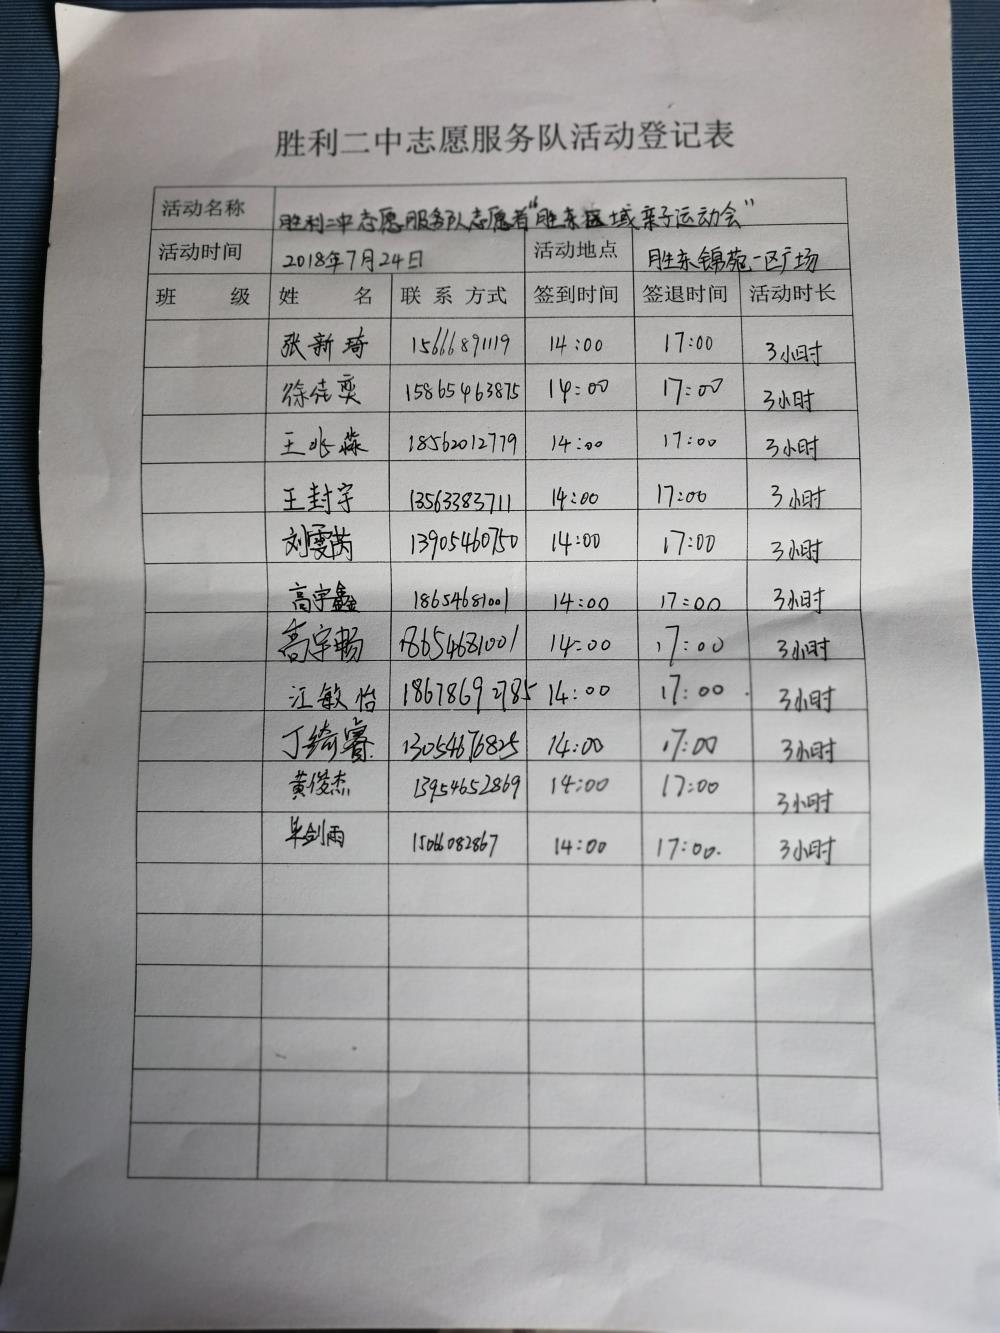 胜利二中志愿服务队活动登记表
活动名称 胜利二中志愿服务队志愿者“胜东区域亲子运动会”
活动时间 2018年7月24日 活动地点 胜东锦苑一区广场
班 级 姓 名 联 系 方式 签到时间 签退时间 活动时长
张新琦 15666891119 14:00 17:00 3小时
徐佳奕 15865463875 14:00 17:00 3小时
王兆淼 18562012779 14:00 17:00 3小时
王封宇 13563383711 14:00 17:00 3小时
刘雯芮 13905460750 14:00 17:00 3小时
高宇鑫 18654681001 14:00 17:00 3小时
高宇畅 18654681001 14:00 17:00 3小时
江敏怡 18678692785 14:00 17:00 3小时
丁绮睿 13054676825 14:00 17:00 3小时
黄俊杰 13954652869 14:00 17:00 3小时
单剑雨 1506082867 14:00 17:00. 3小时